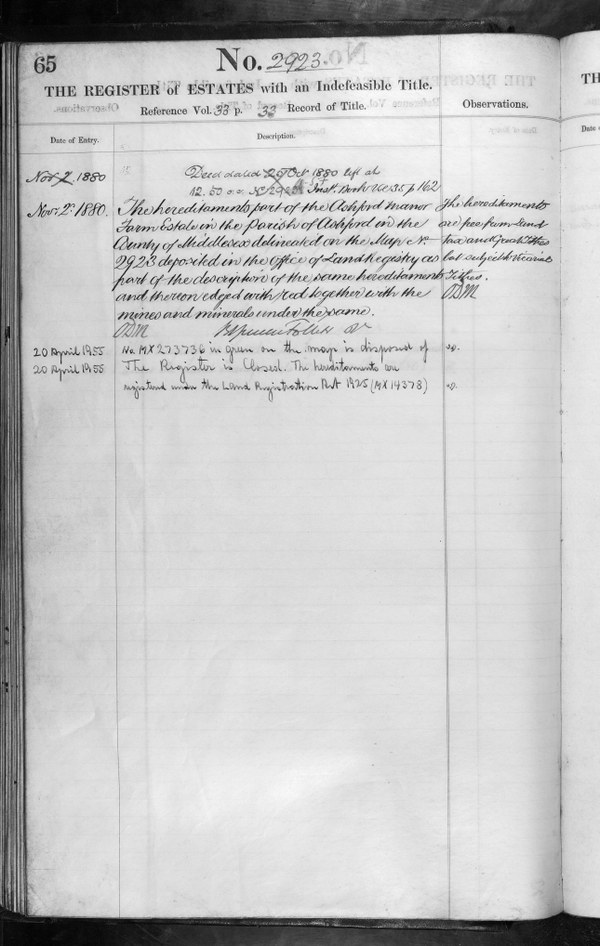 65
No. 2923.
THE REGISTER of ESTATES with an Indefeasible Title.
Reference Vol. 33 p. 33 Record of Title.
Observations.
Date of Entry.
Description.
Nov. 2. 1880
Deed dated Oct 1880 left at
12.50 Inst. Book Vol 35 p 162
Nov. 2. 1880.
The hereditaments part of the Ashford Manor
Farm Estate in the Parish of Ashford in the
County of Middlesex delineated on the Map No
2923 deposited in the office of Land Registry as
part of the description of the same hereditaments
and thereon edged with red together with the
mines and minerals under the same.
The hereditaments
are free from Land
tax and
but subject to
Tithes.
20 April 1955
No. MX 273736 in green on the map is disposed of
20 April 1955
The Register is Closed. The hereditaments are
registered under the Land Registration Act 1925 (MX 14378)